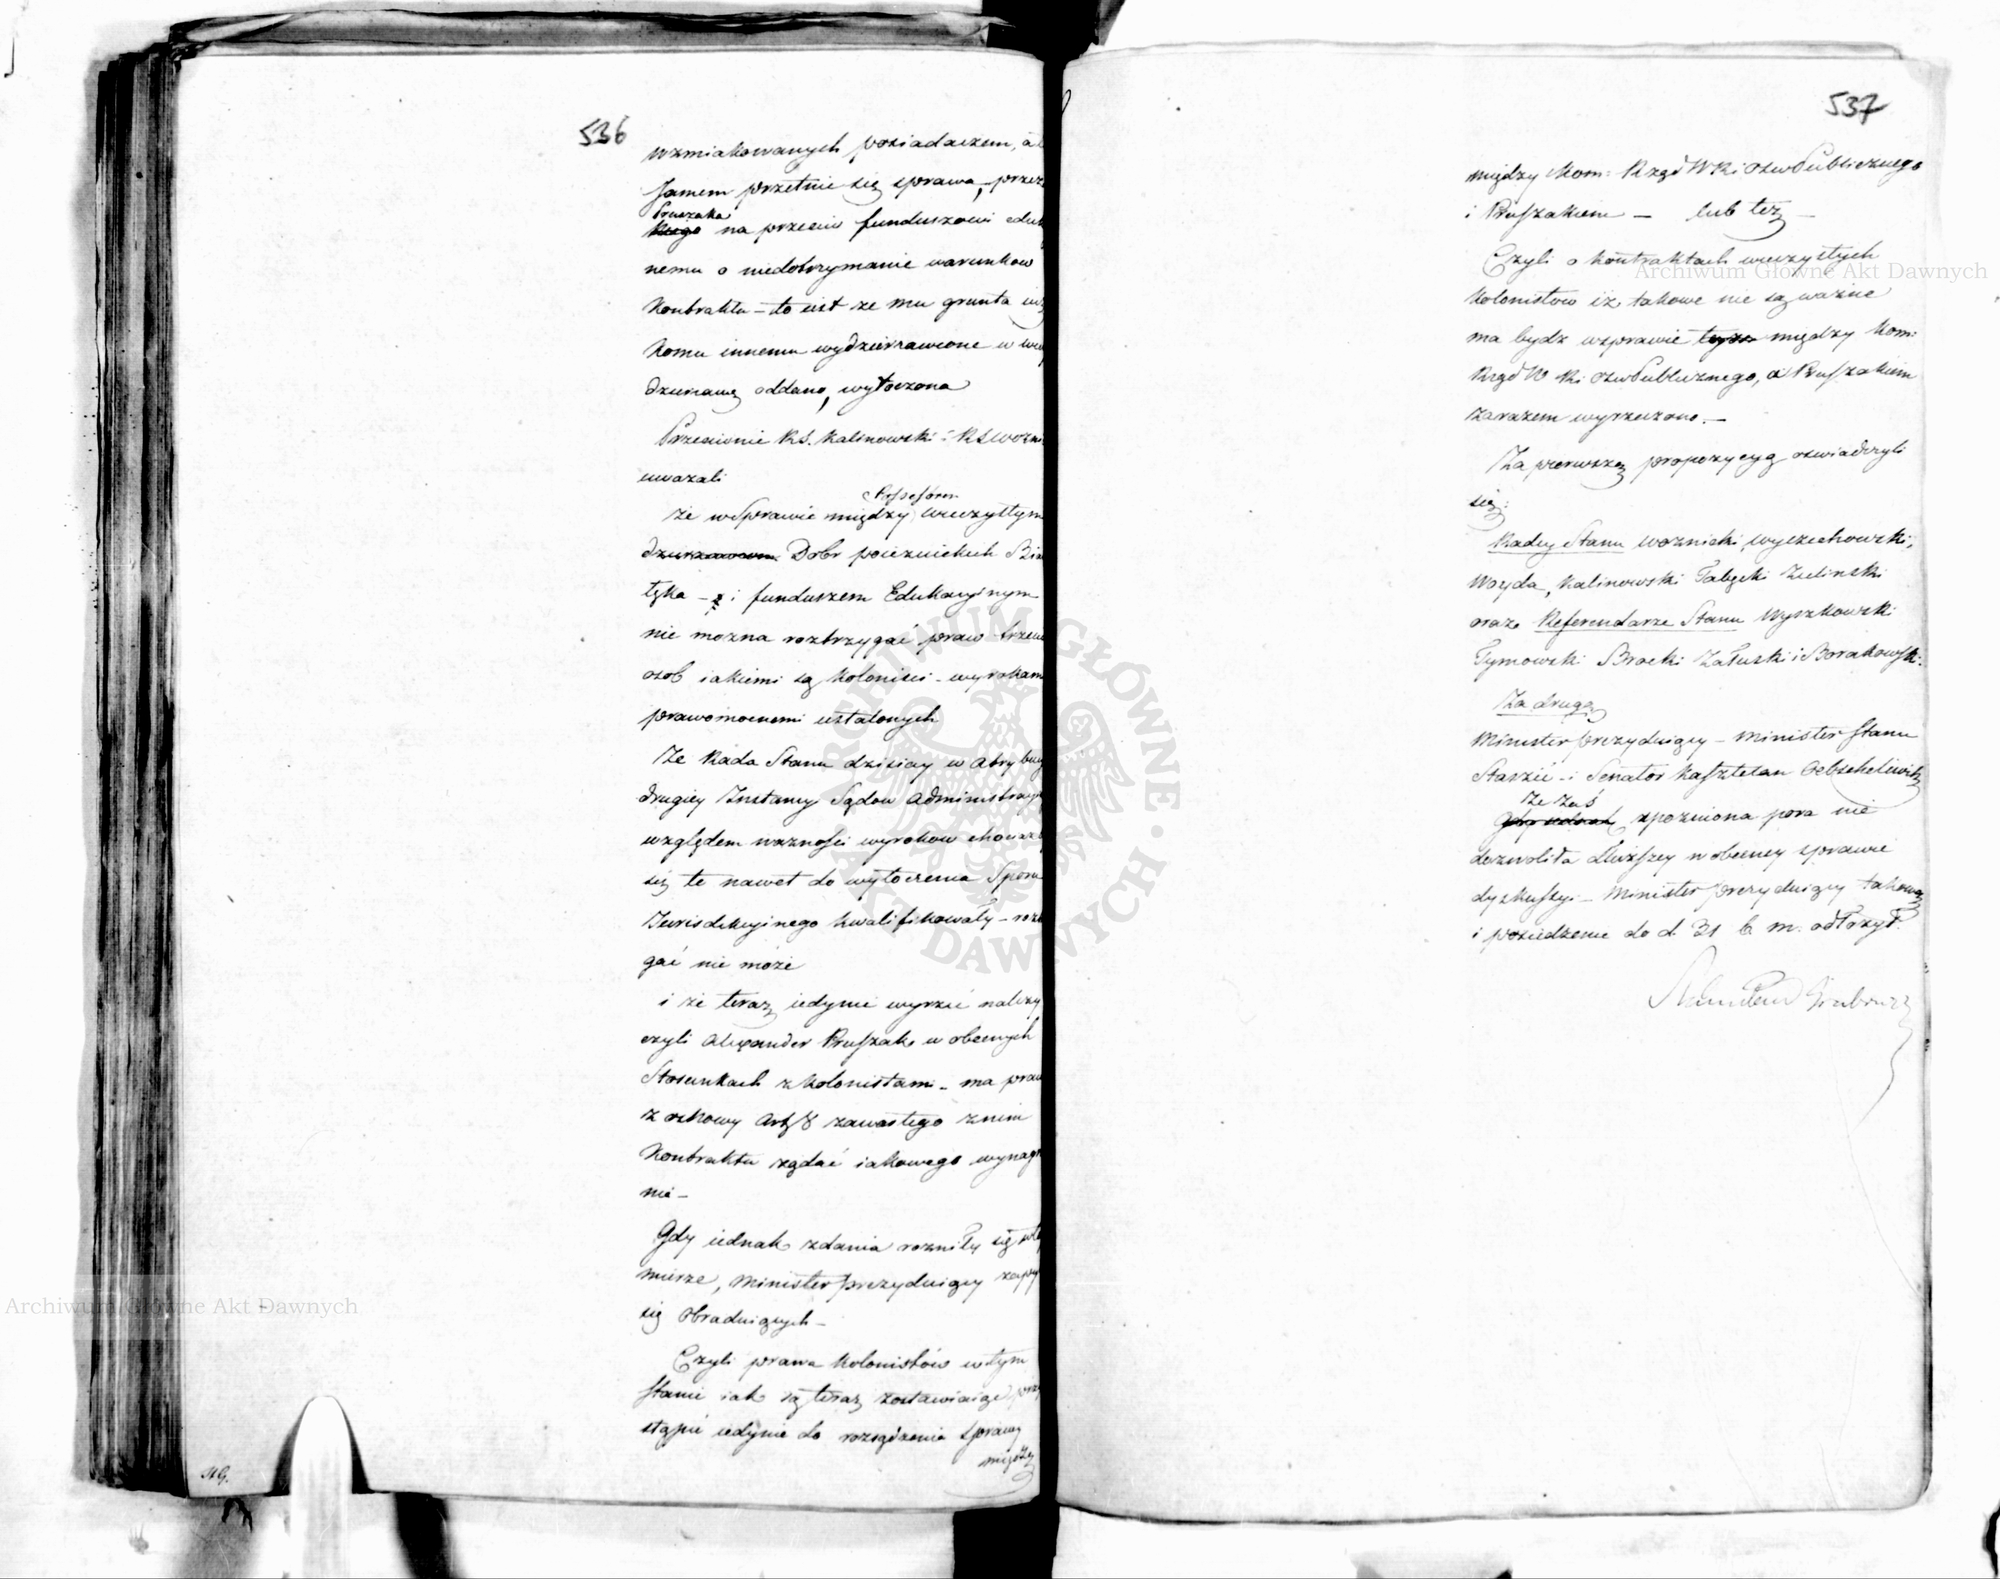 536
wzmiakowanych posiadaczem, a
samem przetnie się sprawa, przez
Pruszaka
na przeciw funduszowi eduk
nemu o niedotrzymanie warunkow
Kontraktu – to iest ze mu grunta
komu innemu wydzierzawione w
dzierzawę oddano, wytoczona
Przeciwnie RS. Kalinowski i RS Wozni
uwazali
Professorem
że w Sprawie między wieczystym
Dobr poiezuickich
– i funduszem Edukacyinym
nie mozna roztrzygać praw trzecich
osob iakiemi są Koloniści – wyrokam
prawomocnemi ustalonych
Ze Rada Stanu dzisiay w Atrybucy
drugiey Instancyi Sądow Administracy
względem wazności wyrokow chociaz
się te nawet do wytoczenia Sporu
Jurisdykcyinego kwalifikowały – roztr
gać nie może
i że teraz iedynie wyrzec nalezy
czyli Alexander Pruszak w obecnych
Stosunkach z kolonistami – ma praw
z osnowy Art 8 zawartego z nim
Kontraktu ządać iakowego wynagr
nia –
Gdy iednak zdania rozniły się w tey
mierze, Minister prezyduiący zapy
się Obraduiących –
Czyli prawa Kolonistów w tym
stanie iak są teraz zostawiaiąc, przy
stąpić iedynie do rozsądzenia sprawy
między
537
między Kom: Rząd W R i Ośw Publicznego
i Pruszakiem – lub też –
Czyli o Kontraktach wieczystych
Kolonistow iż takowe nie są wazne
ma bydz w sprawie między Kom:
Rząd W Ri Ośw Publicznego, a Pruszakiem
zarazem wyrzeczono. –
Za pierwszą propozycyą oswiadczyli
się:
Radcy Stanu Woznicki, Wyczechowski,
Woyda, Kalinowski Zielinski
oraz Referendarze Stanu Wyszkowski
Tymowski Brocki Załuski i Borakowski.
Za drugą
Minister prezyduiący – Minister Stanu
Staszic – i Senator Kasztelan
Ze zaś
spozniona pora nie
dozwoliła dłuższey w obecney sprawie
dyskussyi – Minister prezyduiący takową
i posiedzenie do d. 31 b. m. odłożył.